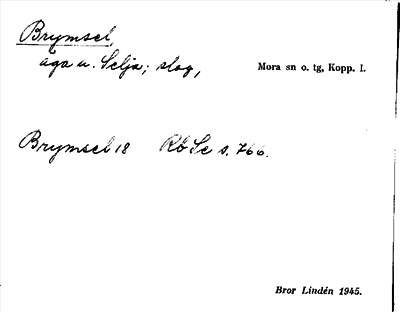 Brymsel,
äga u. Selja; slog,
Mora sn o. tg, Kopp. l.
Brymsel 18 Rö Se s. 766.
Bror Lindén 1945.